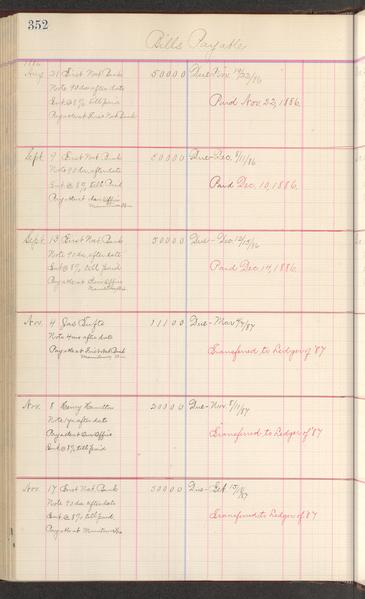 352
Bills Payable
1886
Aug 21 First Nat Bank 500 00 Due Nov. 19/22/86
Note 90 das after date
Int @ 8% till paid Paid Nov. 22, 1886.
Payable at First Nat Bank
Sept. 9 First Nat Bank 500 00 Due Dec. 8/11/86
Note 90 das after date
Int @ 8% till Paid Paid Dec. 10, 1886.
Payable at Our Office
Sept. 13 First Nat Bank 500 00 Due Dec 12/15/86
Note 90 das after date
Int @ 8% till paid Paid Dec 14, 1886.
Payable at Our Office
Nov. 4 Jas 111 00 Due Mar 4/7/87
Note 4 mos after date
Payable at First Nat Bank Transfered to Ledger of '87
Nov. 8 Henry Hamilton 200 00 Due Nov. 8/11/87
Note 1 yr after date
Payable at Our Office Transfered to Ledger of '87
Int @ 8% till paid
Nov. 17 First Nat Bank 500 00 Due Feb 15/18/87
Note 90 das after date
Int @ 8% till paid Transfered to Ledger of '87
Payable at